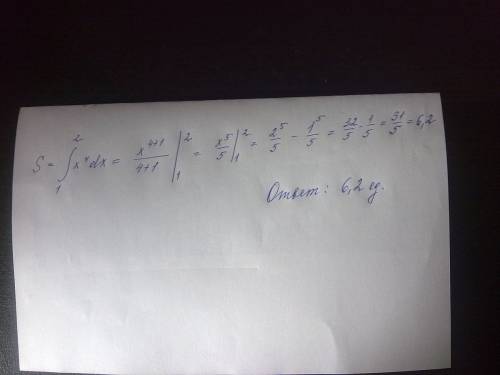 S = ∫₁² x⁴ dx = x⁴⁺¹/4+1 |₁² = x⁵/5 |₁² = 2⁵/5 - 1⁵/5 = 32/5 · 1/5 = 31/5 = 6,2
Ответ: 6,2 ед.